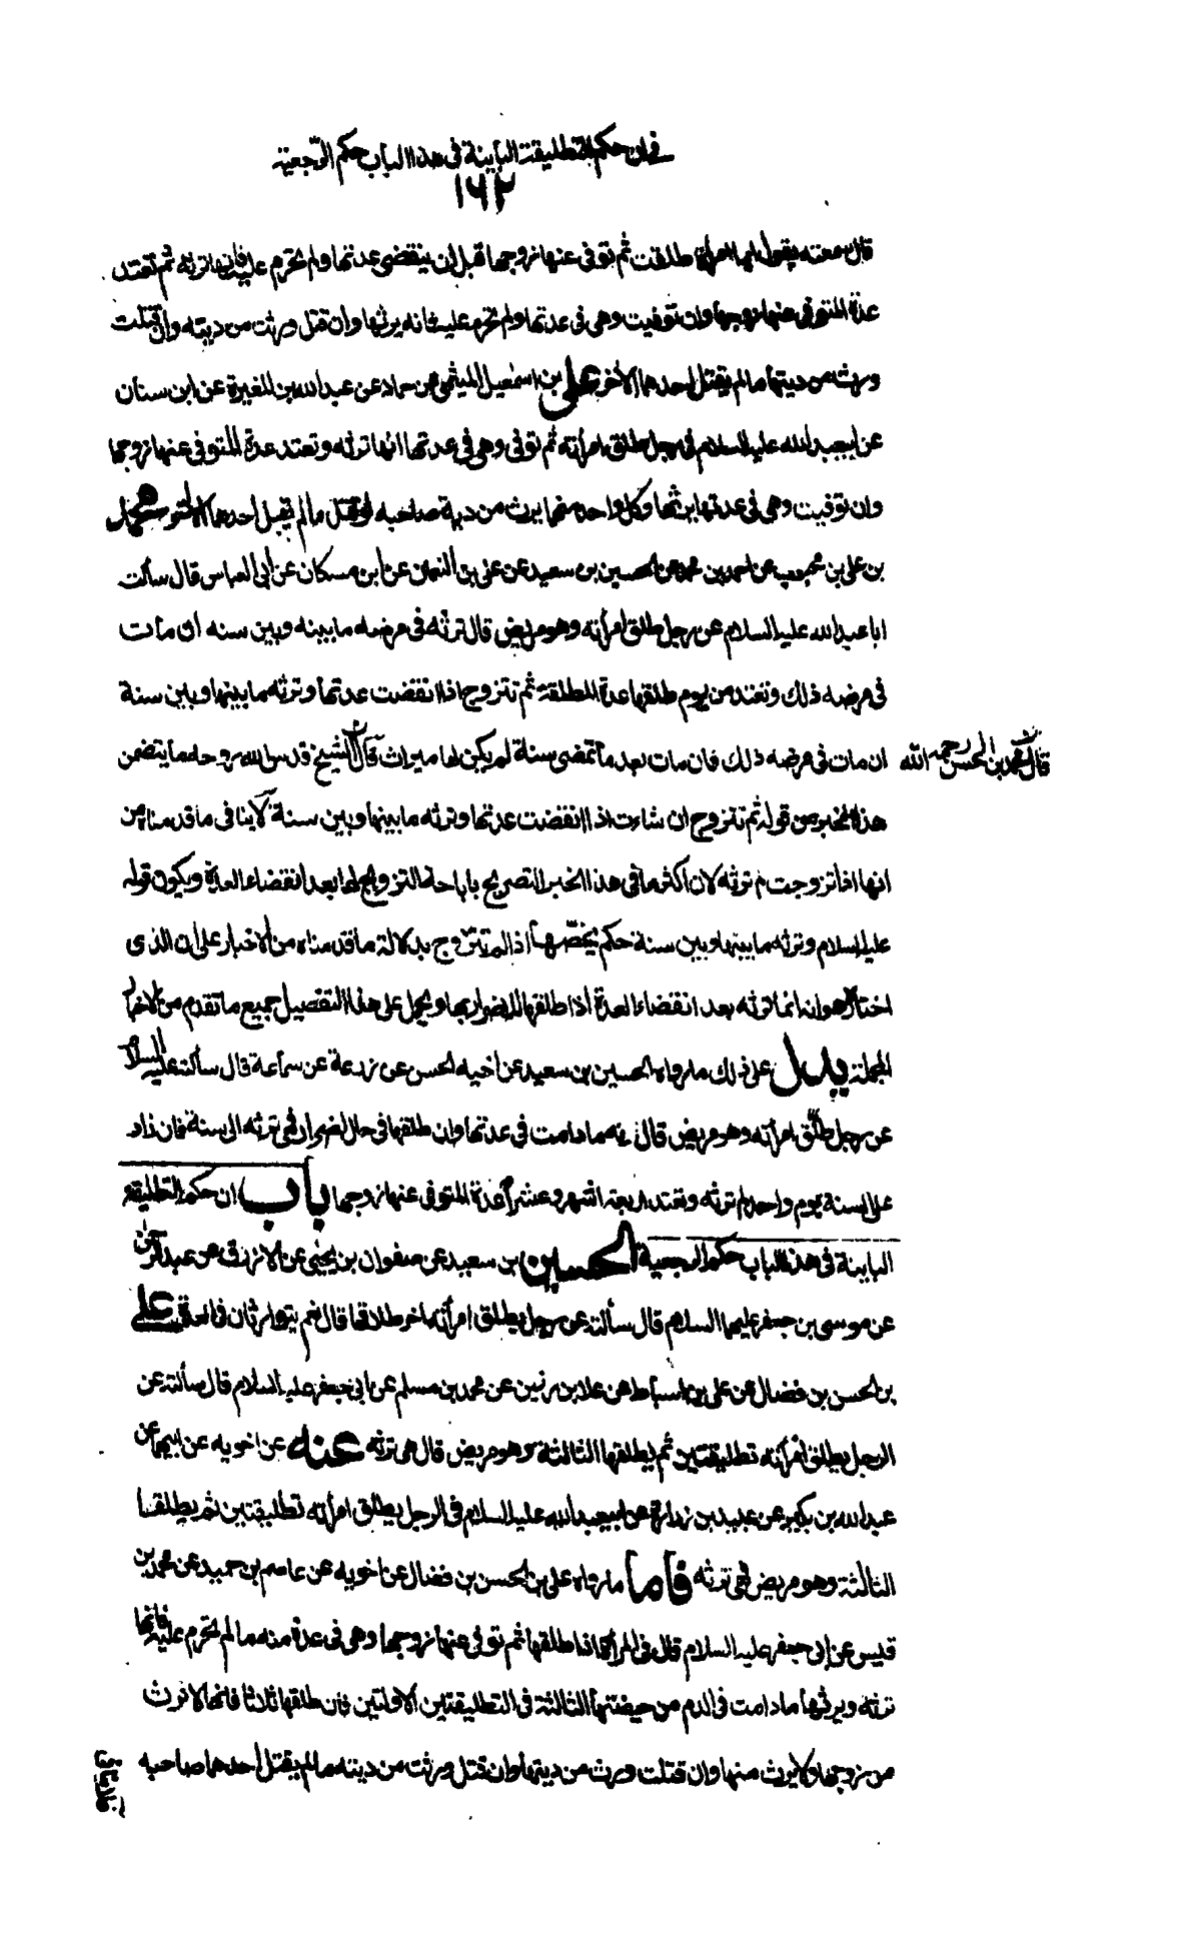 في ان حكم التطليقة البائنة في هذا الباب حكم الرّجعية
١٦٢
قال سمعته يقول ايما امرأة طلقت ثم توفى عنها زوجها قبل ان ينقضى عدتها ولم تحرم عليه فانها ترثه ثم تعتد
عدة المتوفى عنها زوجها وان توفيت وهى فى عدتها ولم تحرم عليه فانه يرثها وان قتل ورثت من ديته وان قتلت
ورث من ديتها ما لم يقتل احدهما الاخر على بن اسمعيل الميثمى عن حماد عن عبد الله بن المغيرة عن ابن سنان
عن ابيعبد الله عليه السلام فى رجل طلق امرأته ثم توفى وهى فى عدتها انها ترثه وتعتد عدة المتوفى عنها زوجها
وان توفيت وهى فى عدتها يرثها وكل واحد منهما يرث من دية صاحبه لو قتل ما لم يقتل احدهما الاخر محمد
بن على بن محبوب عن احمد بن محمد عن الحسين بن سعيد عن على بن النعمان عن ابن مسكان عن ابى العباس قال سألت
ابا عبد الله عليه السلام عن رجل طلق امرأته وهو مريض قال ترثه فى مرضه ما بينه وبين سنه ان مات
فى مرضه ذلك وتعتد من يوم طلقها عدة المطلقة ثم تتزوج اذا انقضت عدتها وترثه ما بينها وبين سنة
ان مات فى مرضه ذلك فان مات بعد ما تمضى سنة لم يكن لها ميراث قال الشيخ قدس الله روحه ما يتضمن
قال محمد بن الحسن رحمه الله
هذا الخبر من قوله ثم تتزوج ان شاءت اذا انقضت عدتها وترثه ما بينها وبين سنة لا ينافى ما قدمناه من
انها اذا تزوجت لم ترثه لان اكثر ما فى هذا الخبر التصريح باباحة التزويج لها بعد انقضاء العدة ويكون قوله
عليه السلام وترثه ما بينها وبين سنة حكم يخصّها اذا لم تتزوج بدلالة ما قدمناه من الاخبار على ان الذى
اختاره هو انه انما ترثه بعد انقضاء العدة اذا طلقها للاضرار بها ويحمل على هذا التفصيل جميع ما تقدم من الاخبار
المجملة يدل على ذلك ما رواه الحسين بن سعيد عن اخيه الحسن عن زرعة عن سماعة قال سألته عليه السلام
عن رجل طلّق امرأته وهو مريض قال ترثه ما دامت فى عدتها وان طلقها فى حال اضرار فهى ترثه الى سنة فان زاد
على السنة يوم واحد لم ترثه وتعتد اربعة اشهر وعشرا عدة المتوفى عنها زوجها باب ان حكم التطليقة
البائنة فى هذا الباب حكم الرجعية الحسين بن سعيد عن صفوان بن يحيى عن الازرق عن عبد الرحمن
عن موسى بن جعفر عليهما السلام قال سألته عن رجل يطلق امرأته اخر طلاقها قال نعم يتوارثان فى العدة على
بن الحسن بن فضال عن على بن اسباط عن علا بن رزين عن محمد بن مسلم عن ابى جعفر عليه السلام قال سألته عن
الرجل يطلق امرأته تطليقتين ثم يطلقها الثالثة وهو مريض قال هى ترثه عنه عن اخويه عن ابيهما عن
عبد الله بن بكير عن عبيد بن زرارة عن ابيعبد الله عليه السلام فى الرجل يطلق امرأته تطليقتين ثم يطلقها
الثالثة وهو مريض فهى ترثه فاما ما رواه على بن الحسن بن فضال عن اخويه عن عاصم بن حميد عن محمد بن
قيس عن ابى جعفر عليه السلام قال فى المرأة اذا طلقها ثم توفى عنها زوجها وهى فى عدة منه ما لم تحرم عليه فانها
ترثه ويرثها ما دامت فى الدم من حيضتها الثالثة فى التطليقتين الاولتين فان طلقها ثلاثا فانها لا ترث
من زوجها ولا يرث منها وان قتلت ورث من ديتها وان قتل ورثت من ديته ما لم يقتل احدهما صاحبه